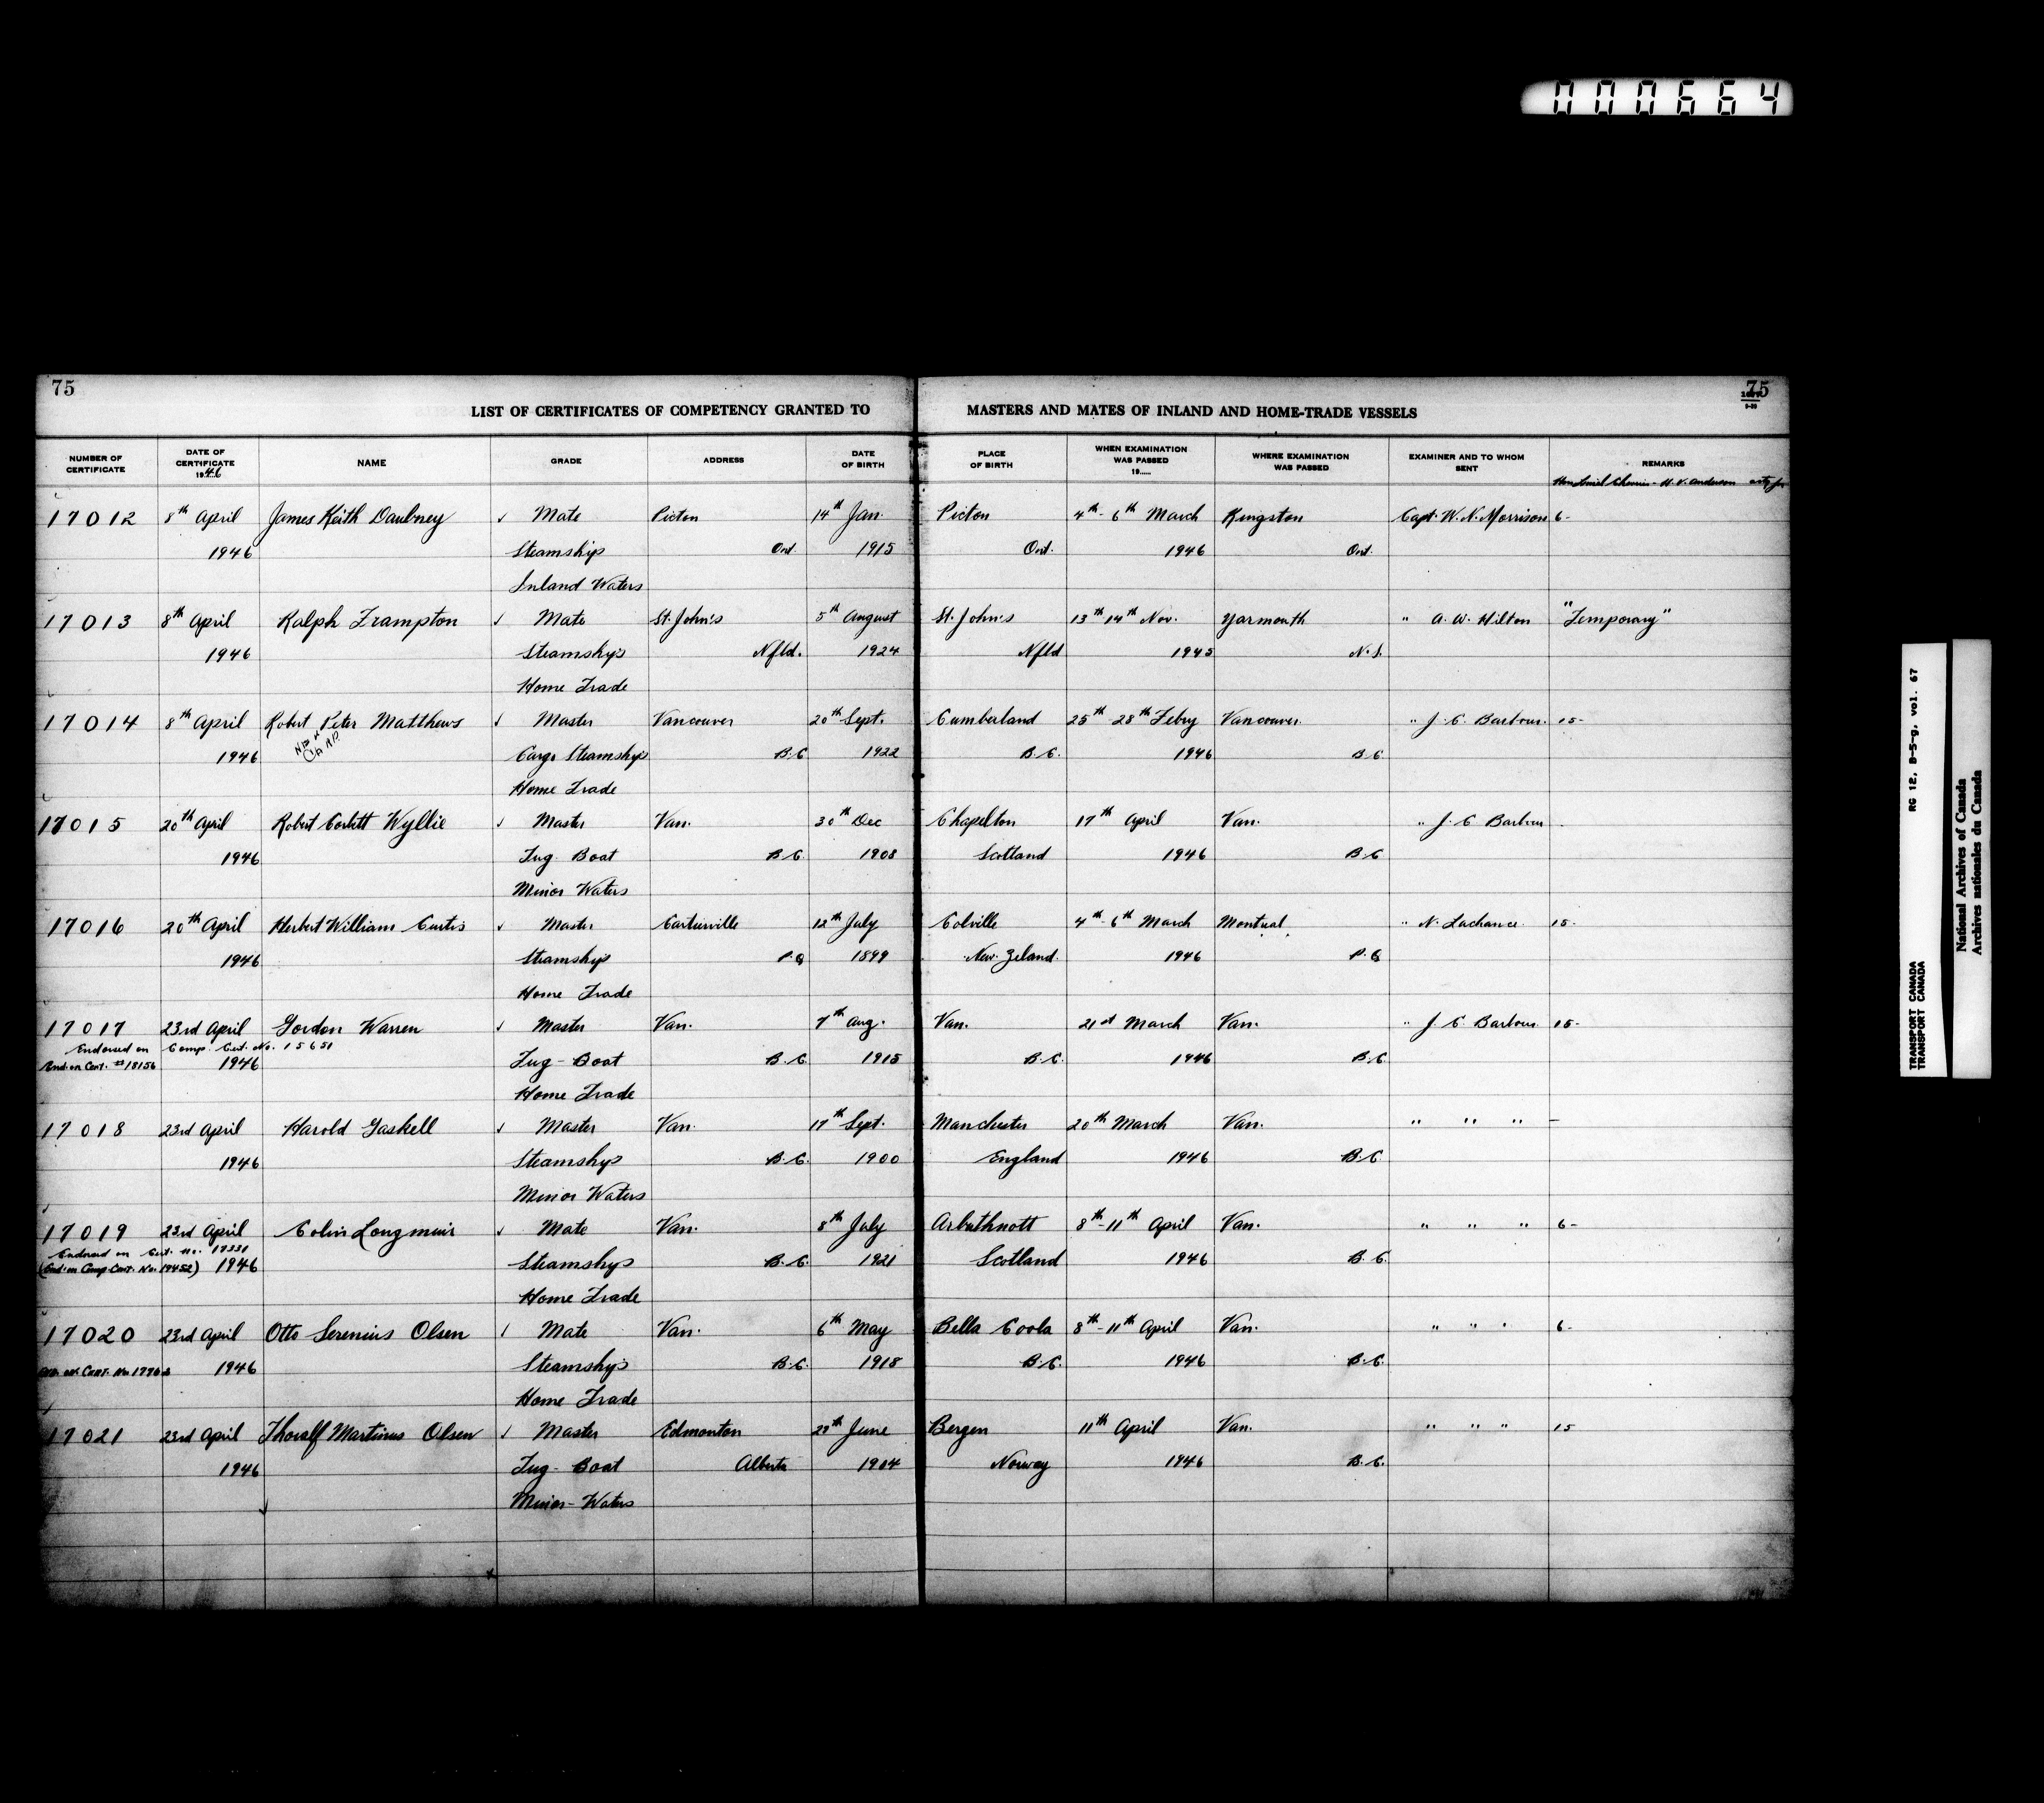 000664
75
75
LIST OF CERTIFICATES OF COMPETENCY GRANTED TO MASTERS AND MATES OF INLAND AND HOME-TRADE VESSELS
NUMBER OF CERTIFICATE DATE OF CERTIFICATE 1946 NAME GRADE ADDRESS DATE OF BIRTH PLACE OF BIRTH WHEN EXAMINATION WAS PASSED 19...... WHERE EXAMINATION WAS PASSED EXAMINER AND TO WHOM SENT REMARKS
17012 8th April James Keith Daubney Mate Picton 14th Jan. Picton 4th - 6th March Kingston Capt. W. N. Morrison 6-
1946 Steamships Ont. 1915 Ont. 1946 Ont.
Inland Waters
17013 8th April Ralph Frampton Mate St. John's 5th August St. John's 13th 14th Nov. Yarmouth " A. W. Hilton "Temporary"
1946 Steamships Nfld. 1924 Nfld 1945 N.S.
Home Trade
17014 8th April Robert Peter Matthews Master Vancouver 20th Sept. Cumberland 25th - 28th Febry Vancouver " J. C. Barbour. 15-
NEW CARD
1946 Cargo Steamships B.C 1922 B.C. 1946 B.C.
Home Trade
17015 20th April Robert Corbett Wyllie Master Van. 30th Dec Chapelton 17th April Van. " J. C Barbour -
1946 Tug Boat B.C. 1908 Scotland 1946 B.C
Minor Waters
17016 20th April Herbert William Curtis Master Cartierville 12th July Colville 4th - 6th March Montreal " N. Lachance. 15-
1946 Steamships P.Q 1899 New Zeland. 1946 P.Q
Home Trade
17017 23rd April Gordon Warren Master Van. 7th Aug. Van. 21st March Van. " J. C. Barbour 15-
Endorsed on Comp. Cert. No. 15651
End. on Cert. #18156 1946 Tug - Boat B.C. 1915 B.C. 1946 B.C.
Home Trade
17018 23rd April Harold Gaskell Master Van. 17th Sept. Manchester 20th March Van. " " " -
1946 Steamships B.C. 1900 England 1946 B.C.
Minor Waters
17019 23rd April Colin Longmuir Mate Van. 8th July Arbuthnott 8th - 11th April Van. " " " 6-
Endorsed on Cert. No. 17331
(End. on Comp. Cert. No. 19452) 1946 Steamships B.C. 1921 Scotland 1946 B.C.
Home Trade
17020 23rd April Otto Serenius Olsen Mate Van. 6th May Bella Coola 8th - 11th April Van. " " " 6-
on Cert. No. 1946 Steamships B.C. 1918 B.C. 1946 B.C.
Home Trade
17021 23rd April Thoralf Martinus Olsen Master Edmonton 29th June Bergen 11th April Van. " " " 15
1946 Tug - Boat Alberta 1904 Norway 1946 B.C.
Minor - Waters
RG 12, B-5-g, vol. 67
TRANSPORT CANADA
TRANSPORT CANADA
National Archives of Canada
Archives nationales du Canada